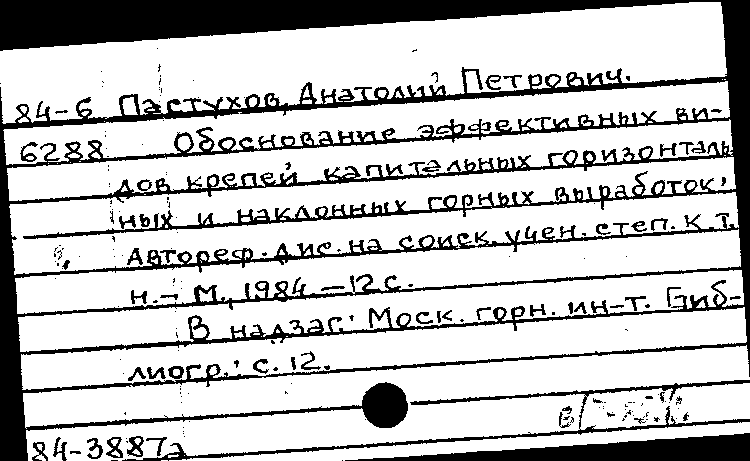 84-6 Пастухов, Анатолий Петрович.
6288 Обоснование эффективных ви-
дов крепей капитальных горизонталь-
ных и наклонных горных выработок:
Автореф. дис. на соиск. учен. степ. к. т.
н. – М., 1984. – 12 с.
В надзаг.: Моск. горн. ин-т. Биб-
лиогр.: с. 12.
84-3887а